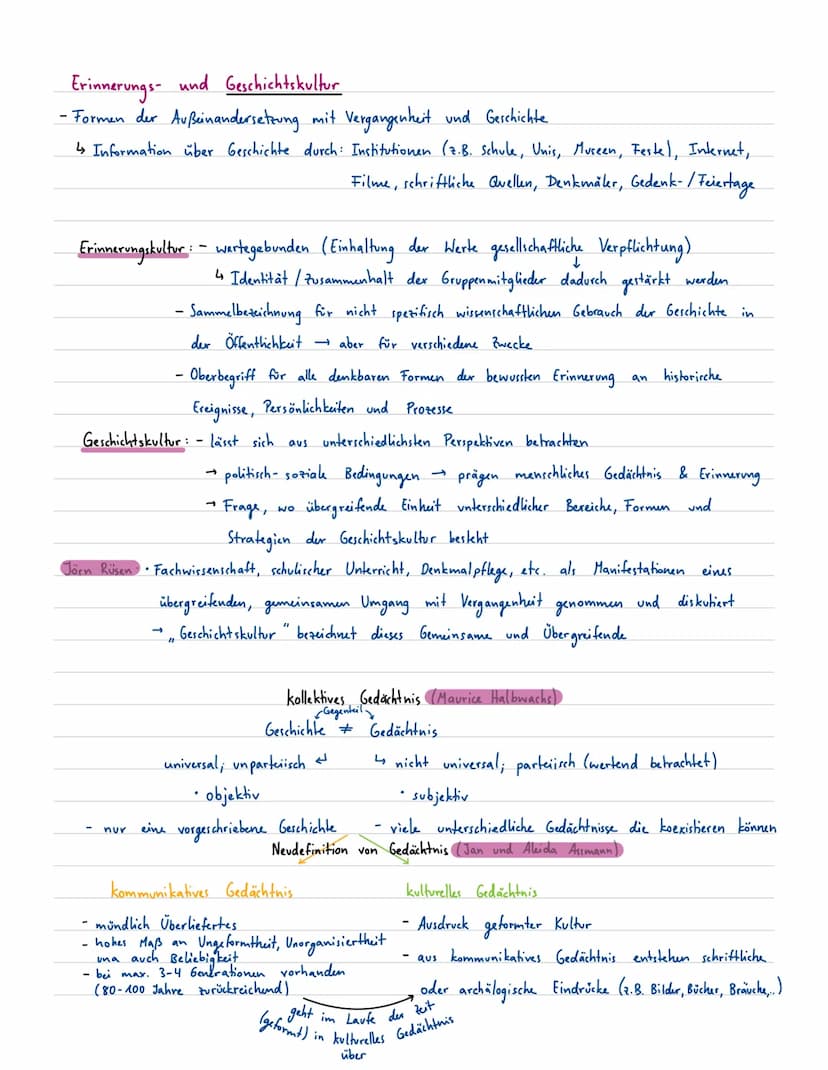 Erinnerungs- und Geschichtskultur
- Formen der Außeinandersetzung mit Vergangenheit und Geschichte
↳ Information über Geschichte durch: Institutionen (z.B. Schule, Unis, Museen, Feste), Internet,
Filme, schriftliche Quellen, Denkmäler, Gedenk-/Feiertage
Erinnerungskultur: - wertegebunden (Einhaltung der Werte gesellschaftliche Verpflichtung)
↓
↳ Identität / Zusammenhalt der Gruppenmitglieder dadurch gestärkt werden
- Sammelbezeichnung für nicht spezifisch wissenschaftlichen Gebrauch der Geschichte in
der Öffentlichkeit → aber für verschiedene Zwecke
- Oberbegriff für alle denkbaren Formen der bewussten Erinnerung an historische
Ereignisse, Persönlichkeiten und Prozesse
Geschichtskultur: - lässt sich aus unterschiedlichsten Perspektiven betrachten
→ politisch-soziale Bedingungen → prägen menschliches Gedächtnis & Erinnerung
→ Frage, wo übergreifende Einheit unterschiedlicher Bereiche, Formen und
Strategien der Geschichtskultur besteht
Jörn Rüsen • Fachwissenschaft, schulischer Unterricht, Denkmalpflege, etc. als Manifestationen eines
übergreifenden, gemeinsamen Umgang mit Vergangenheit genommen und diskutiert
→ „Geschichtskultur" bezeichnet dieses Gemeinsame und Übergreifende
kollektives Gedächtnis (Maurice Halbwachs)
Gegenteil
Geschichte ≠ Gedächtnis
universal; unparteiisch ↵ ↳ nicht universal; parteiisch (wertend betrachtet)
• objektiv • subjektiv
- nur eine vorgeschriebene Geschichte - viele unterschiedliche Gedächtnisse die koexistieren können
Neudefinition von Gedächtnis (Jan und Aleida Assmann)
kommunikatives Gedächtnis kulturelles Gedächtnis
- mündlich Überliefertes - Ausdruck geformter Kultur
- hohes Maß an Ungeformtheit, Unorganisiertheit
una auch Beliebigkeit - aus kommunikatives Gedächtnis entstehen schriftliche
- bei max. 3-4 Generationen vorhanden
(80-100 Jahre zurückreichend) oder archälogische Eindrücke (z.B. Bilder, Bücher, Bräuche,..)
geht im Laufe der Zeit
(geformt) in kulturelles Gedächtnis
über